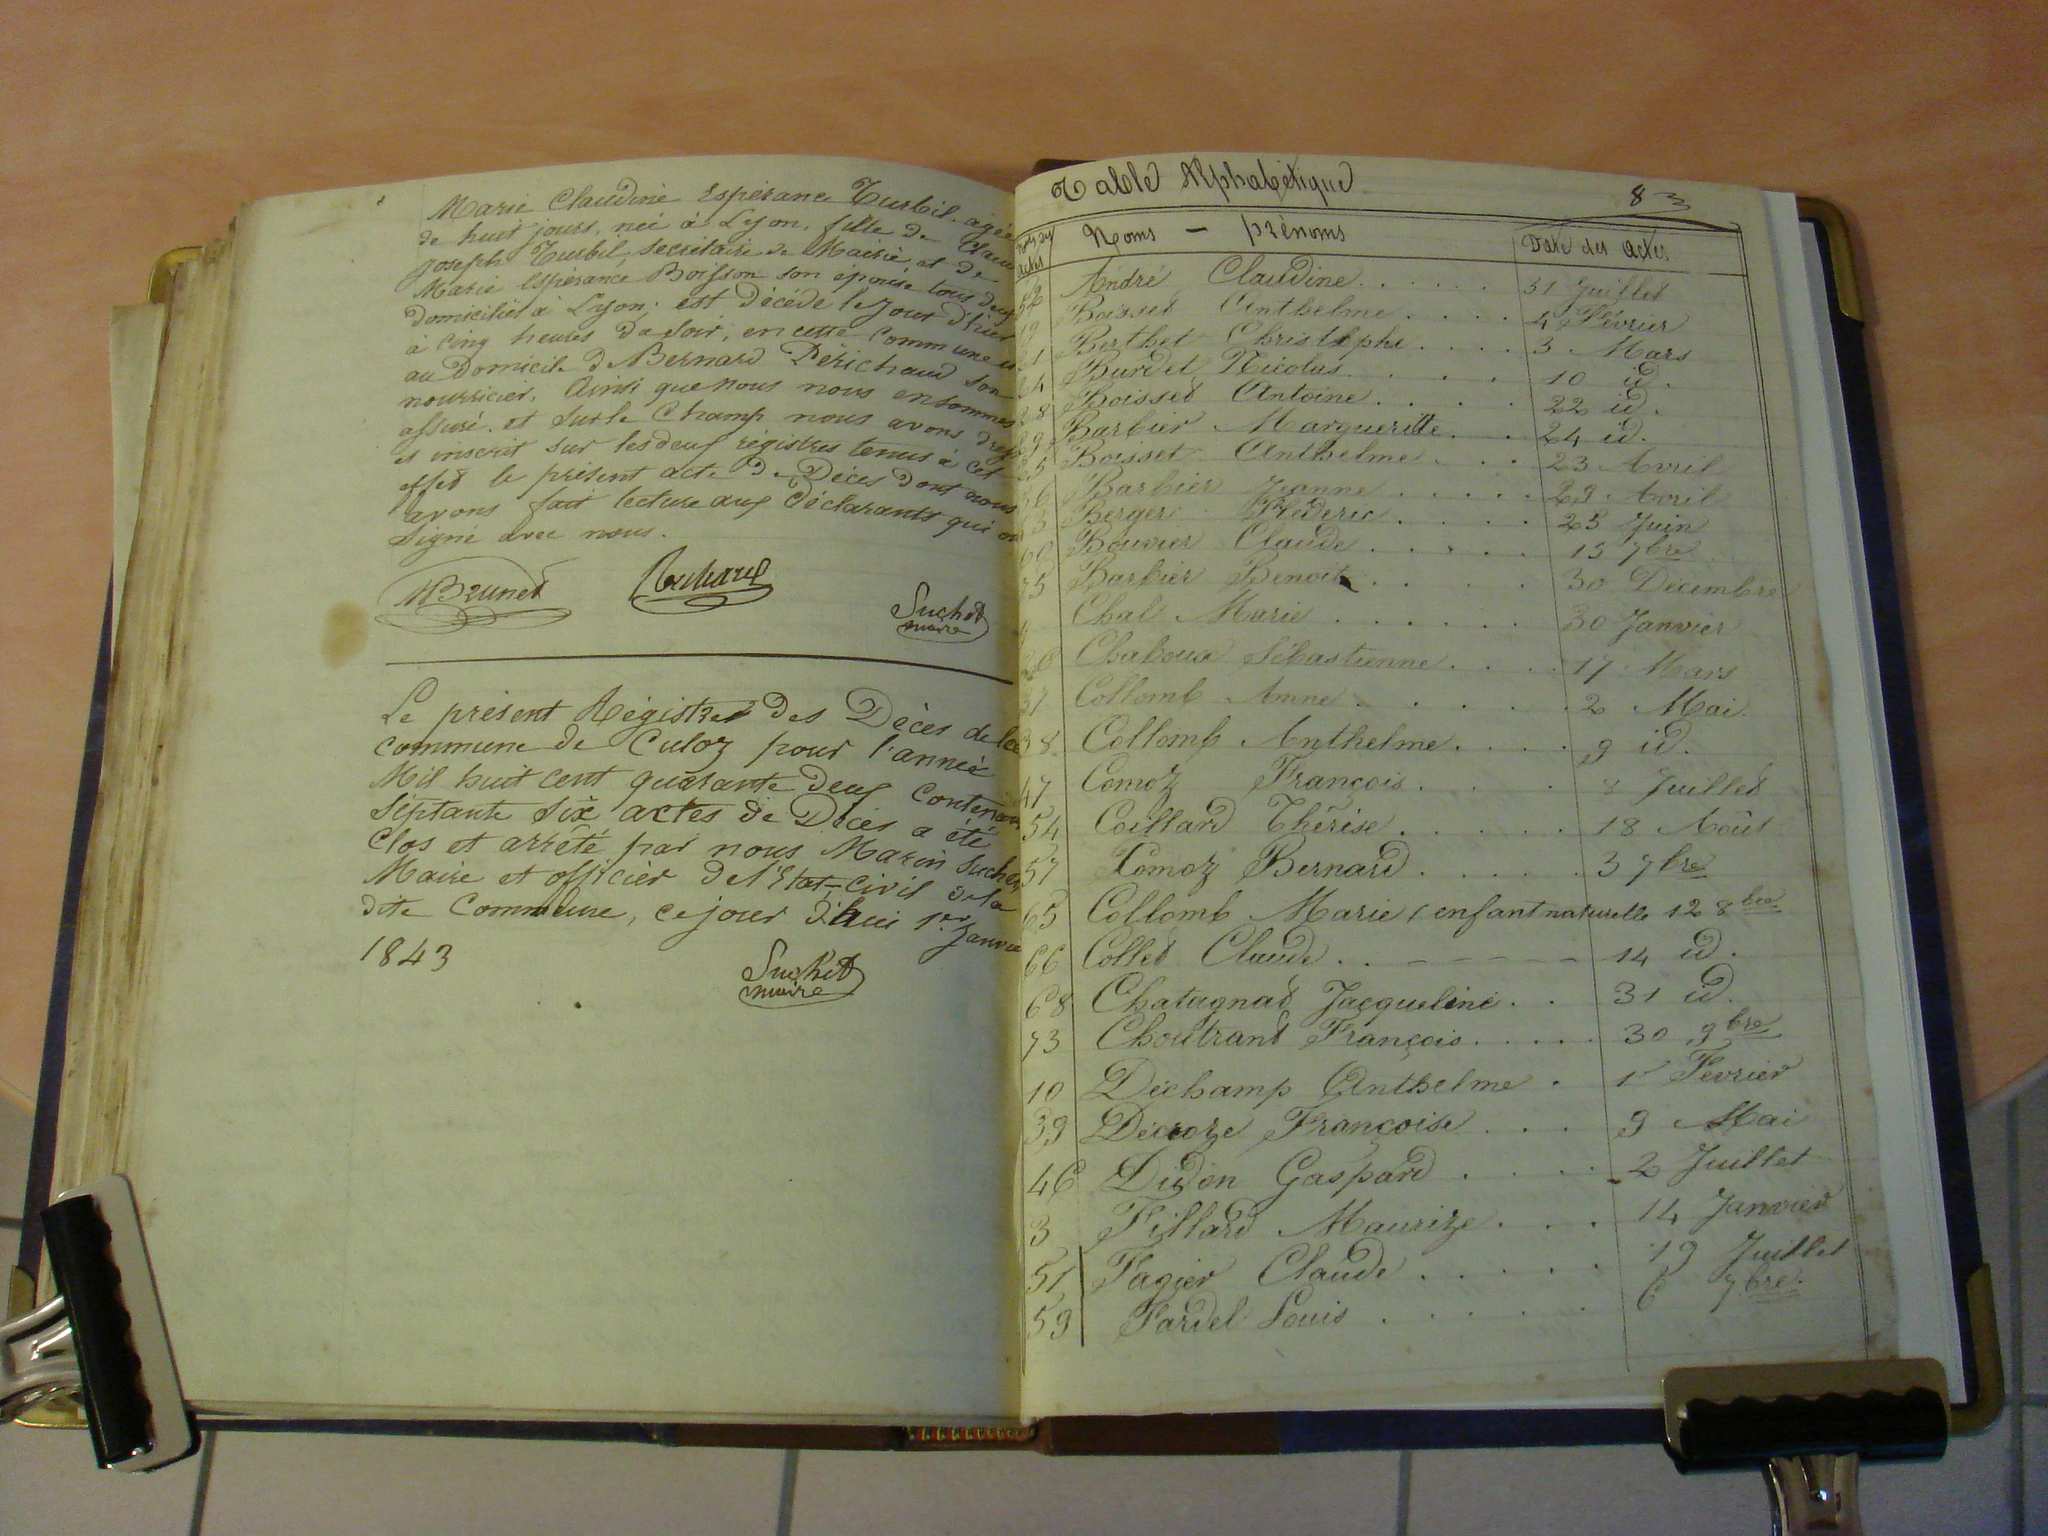 Marie Claudine Espérance Turbil agée
de huit jours, née à Lyon, fille de Claude
Joseph Turbil, secrétaire de Mairie et de
Marie Espérance Boisson son épouse tous deux
domiciliés à Lyon; est décédé le jour d'hier
à cinq heures du soir, en cette commune
au domicile de Bernard Périchaud son
nourricier. Ainsi que nous nous en sommes
assuré. et sur le champ nous avons
et inscrit sur les deux régistres tenus à cet
effet le présent acte de Décès dont nous
avons fait lecture aux déclarants qui ont
signé avec nous.
Brunet
Suchet
maire
Le présent Régistre des Décès de la
commune de Culoz pour l'année
Mil huit cent quarante deux contenant
Séptante six actes de Décès a été
Clos et arrêté par nous Marin Suchet
Maire et officier de l'état-civil de la
dite Commune, ce jour d'hui 1er Janvier
1843
Suchet
maire
Table Alphabétique 83
actes Noms - prénoms Date des actes
52 André Claudine 31 Juillet
Boisset Anthelme 4 Février
Berthet Christophe 3 Mars
24 Burdet Nicolas 10 id.
28 Boisset Antoine 22 id.
29 Barbier Margueritte 24 id.
35 Boisset Anthelme 23 Avril
36 Barbier Jeanne 29 Avril
Berger Fréderic 25 Juin
60 Bouvier Claude 15 7bre
75 Barbier Benoit 30 Décembre
Chal Marie 30 Janvier
26 Chaboux Sébastienne 17 Mars
37 Collomb Anne 2 Mai
38 Collomb Anthelme 9 id.
47 Comoz François 8 Juillet
54 Coillard Thérise 18 Août
57 Comoz Bernard 3 7bre
65 Collomb Marie (enfant naturelle 12 8bre
66 Collet Claude 14 id.
68 Chatagnat Jacqueline 31 id.
73 Choutrant François 30 9bre
10 Déchamp Anthelme 1er Février
39 Décroze Françoise 9 Mai
46 Didon Gaspard 2 Juillet
3 Fillard Maurize 14 Janvier
51 Fagier Claude 19 Juillet
59 Fardel Louis 6 7bre